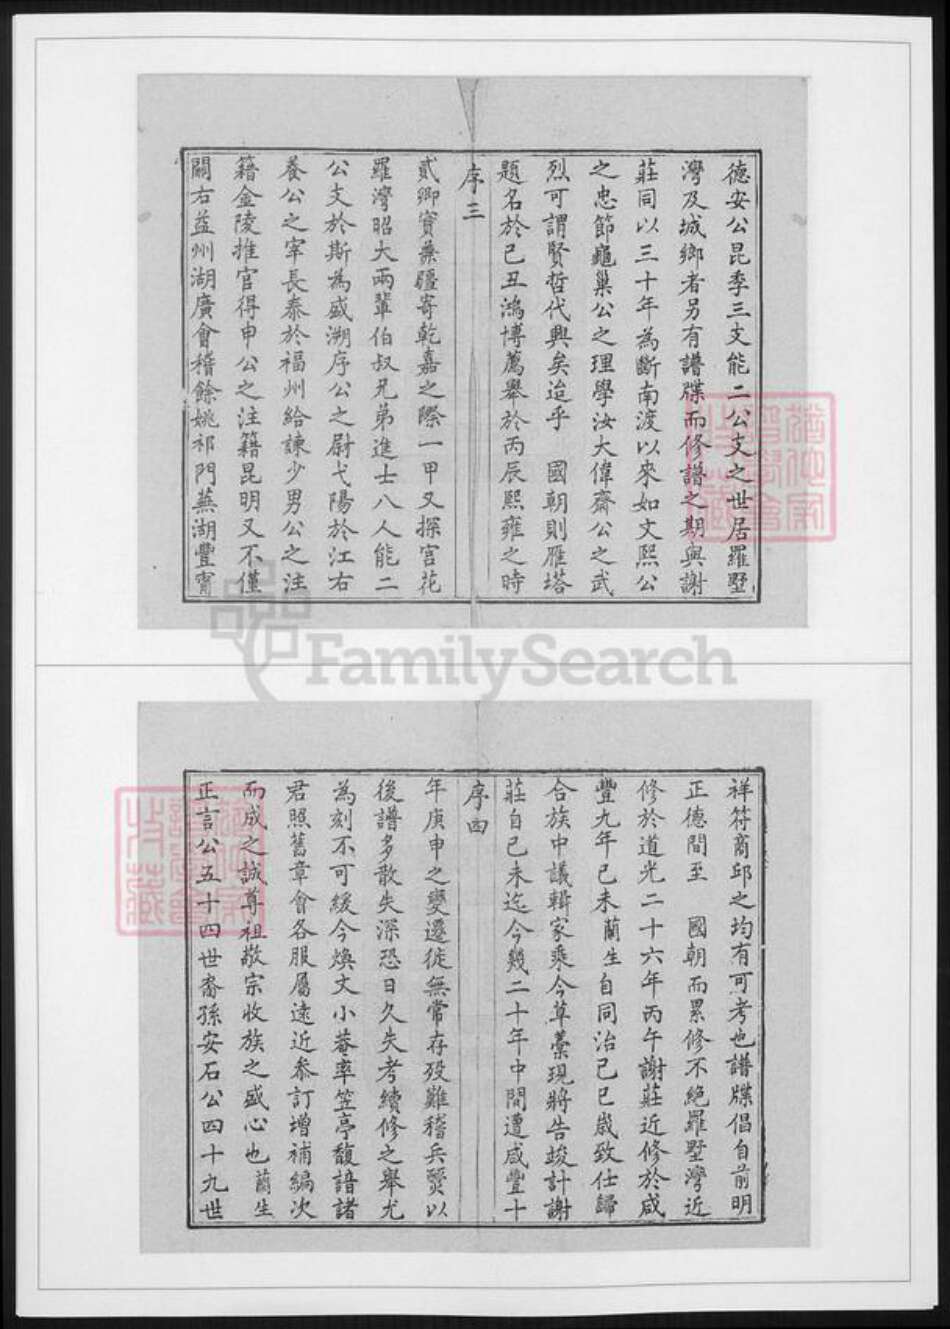 德安公昆季三支能二公支之世居羅墅
灣及城鄉者另有譜牒而修譜之期與謝
莊同以三十年為斷南渡以來如文熙公
之忠節龜巢公之理學汝大偉齋公之武
烈可謂賢哲代興矣迨乎　國朝則雁塔
題名於己丑鴻博薦舉於丙辰熙雍之時
序三
貳卿實兼疆寄乾嘉之際一甲又探宮花
羅灣昭大兩輩伯叔兄弟進士八人能二
公支於斯為盛溯序公之尉弋陽於江右
養公之宰長泰於福州給諫少男公之注
籍金陵推官得申公之注籍昆明又不僅
關右益州湖廣會稽餘姚祁門蕪湖豐甯
祥符商邱之均有可考也譜牒倡自前明
正德間至　國朝而累修不絕羅墅灣近
修於道光二十六年丙午謝莊近修於咸
豐九年己未蘭生自同治己巳歲致仕歸
合族中議輯家乘今草藁現將告竣計謝
莊自己未迄今幾二十年中間遭咸豐十
序四
年庚申之變遷徙無常存歿難稽兵燹以
後譜多散失深恐日久失考續修之舉尤
為刻不可緩今煥文小菴率笠亭馥諳諸
君照舊章會各服屬遠近參訂增補編次
而成之誠尊祖敬宗收族之盛心也蘭生
正言公五十四世裔孫安石公四十九世
FamilySearch